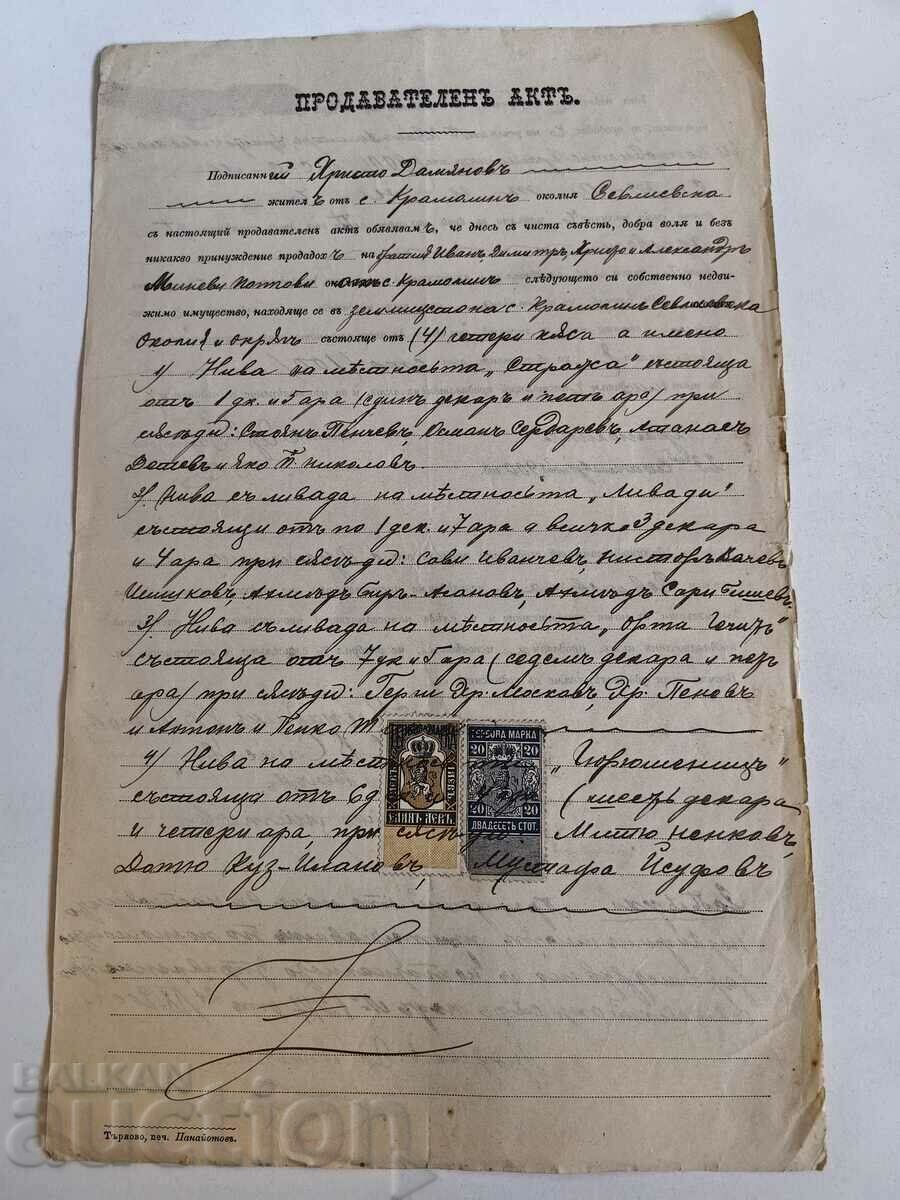 ПРОДАВАТЕЛЕНЪ АКТЪ.
Подписанний Христо Дамяновъ
жителъ отъ с. Крамолинъ околия Севлиевска
съ настоящий продавателенъ актъ обявявамъ, че днесъ съ чиста съвѣсть, добра воля и безъ
никакво принуждение продадохъ на братия Иванъ, Димитръ, Христо и Александръ
Миневи Поппови отъ с. Крамолинъ слѣдующето си собственно недви-
жимо имущество, находяще се въ землището на с. Крамолинъ Севлиевска
Околия и окрѫгъ състояще отъ (4) четери кѫса а имено
1) Нива на мѣстностьта „Стража" състояща
отъ 1 дк. и 5 ара (единъ декаръ и петь ара) при
сѫсѣди: Стоянъ Пенчевъ, Османъ Сердаревъ, Атанасъ
и Яко П. Николовъ.
2) Нива съ ливада на мѣстностьта „Ливади"
състоящи отъ по 1 дек. и 7 ара а всичко 3 декара
и 4 ара при сѫсѣди: Сави Иванчевъ, Нисторъ Качевъ
Ахмедъ Ахмедъ Сари
3) Нива съ ливада на мѣстностьта „Орта
състояща отъ 7 дк. и 5 ара (седемъ декара и петь
ара) при сѫсѣди: Герги Др. Московъ, Др. Пеновъ
и Антонъ и Пенко
4) Нива на „Гюрюшеницъ"
състояща отъ 6 (шесть декара
и четери ара, при сѫсѣди: Митю Ненковъ,
Мустафа Исуфовъ
ЕДИНЪ ЛЕВЪ.
ГЕРБОВА МАРКА
20 20
20 20
ДВАДЕСЕТЬ СТОТ.
Търново, печ. Панайотовъ.
BALKAN
auction